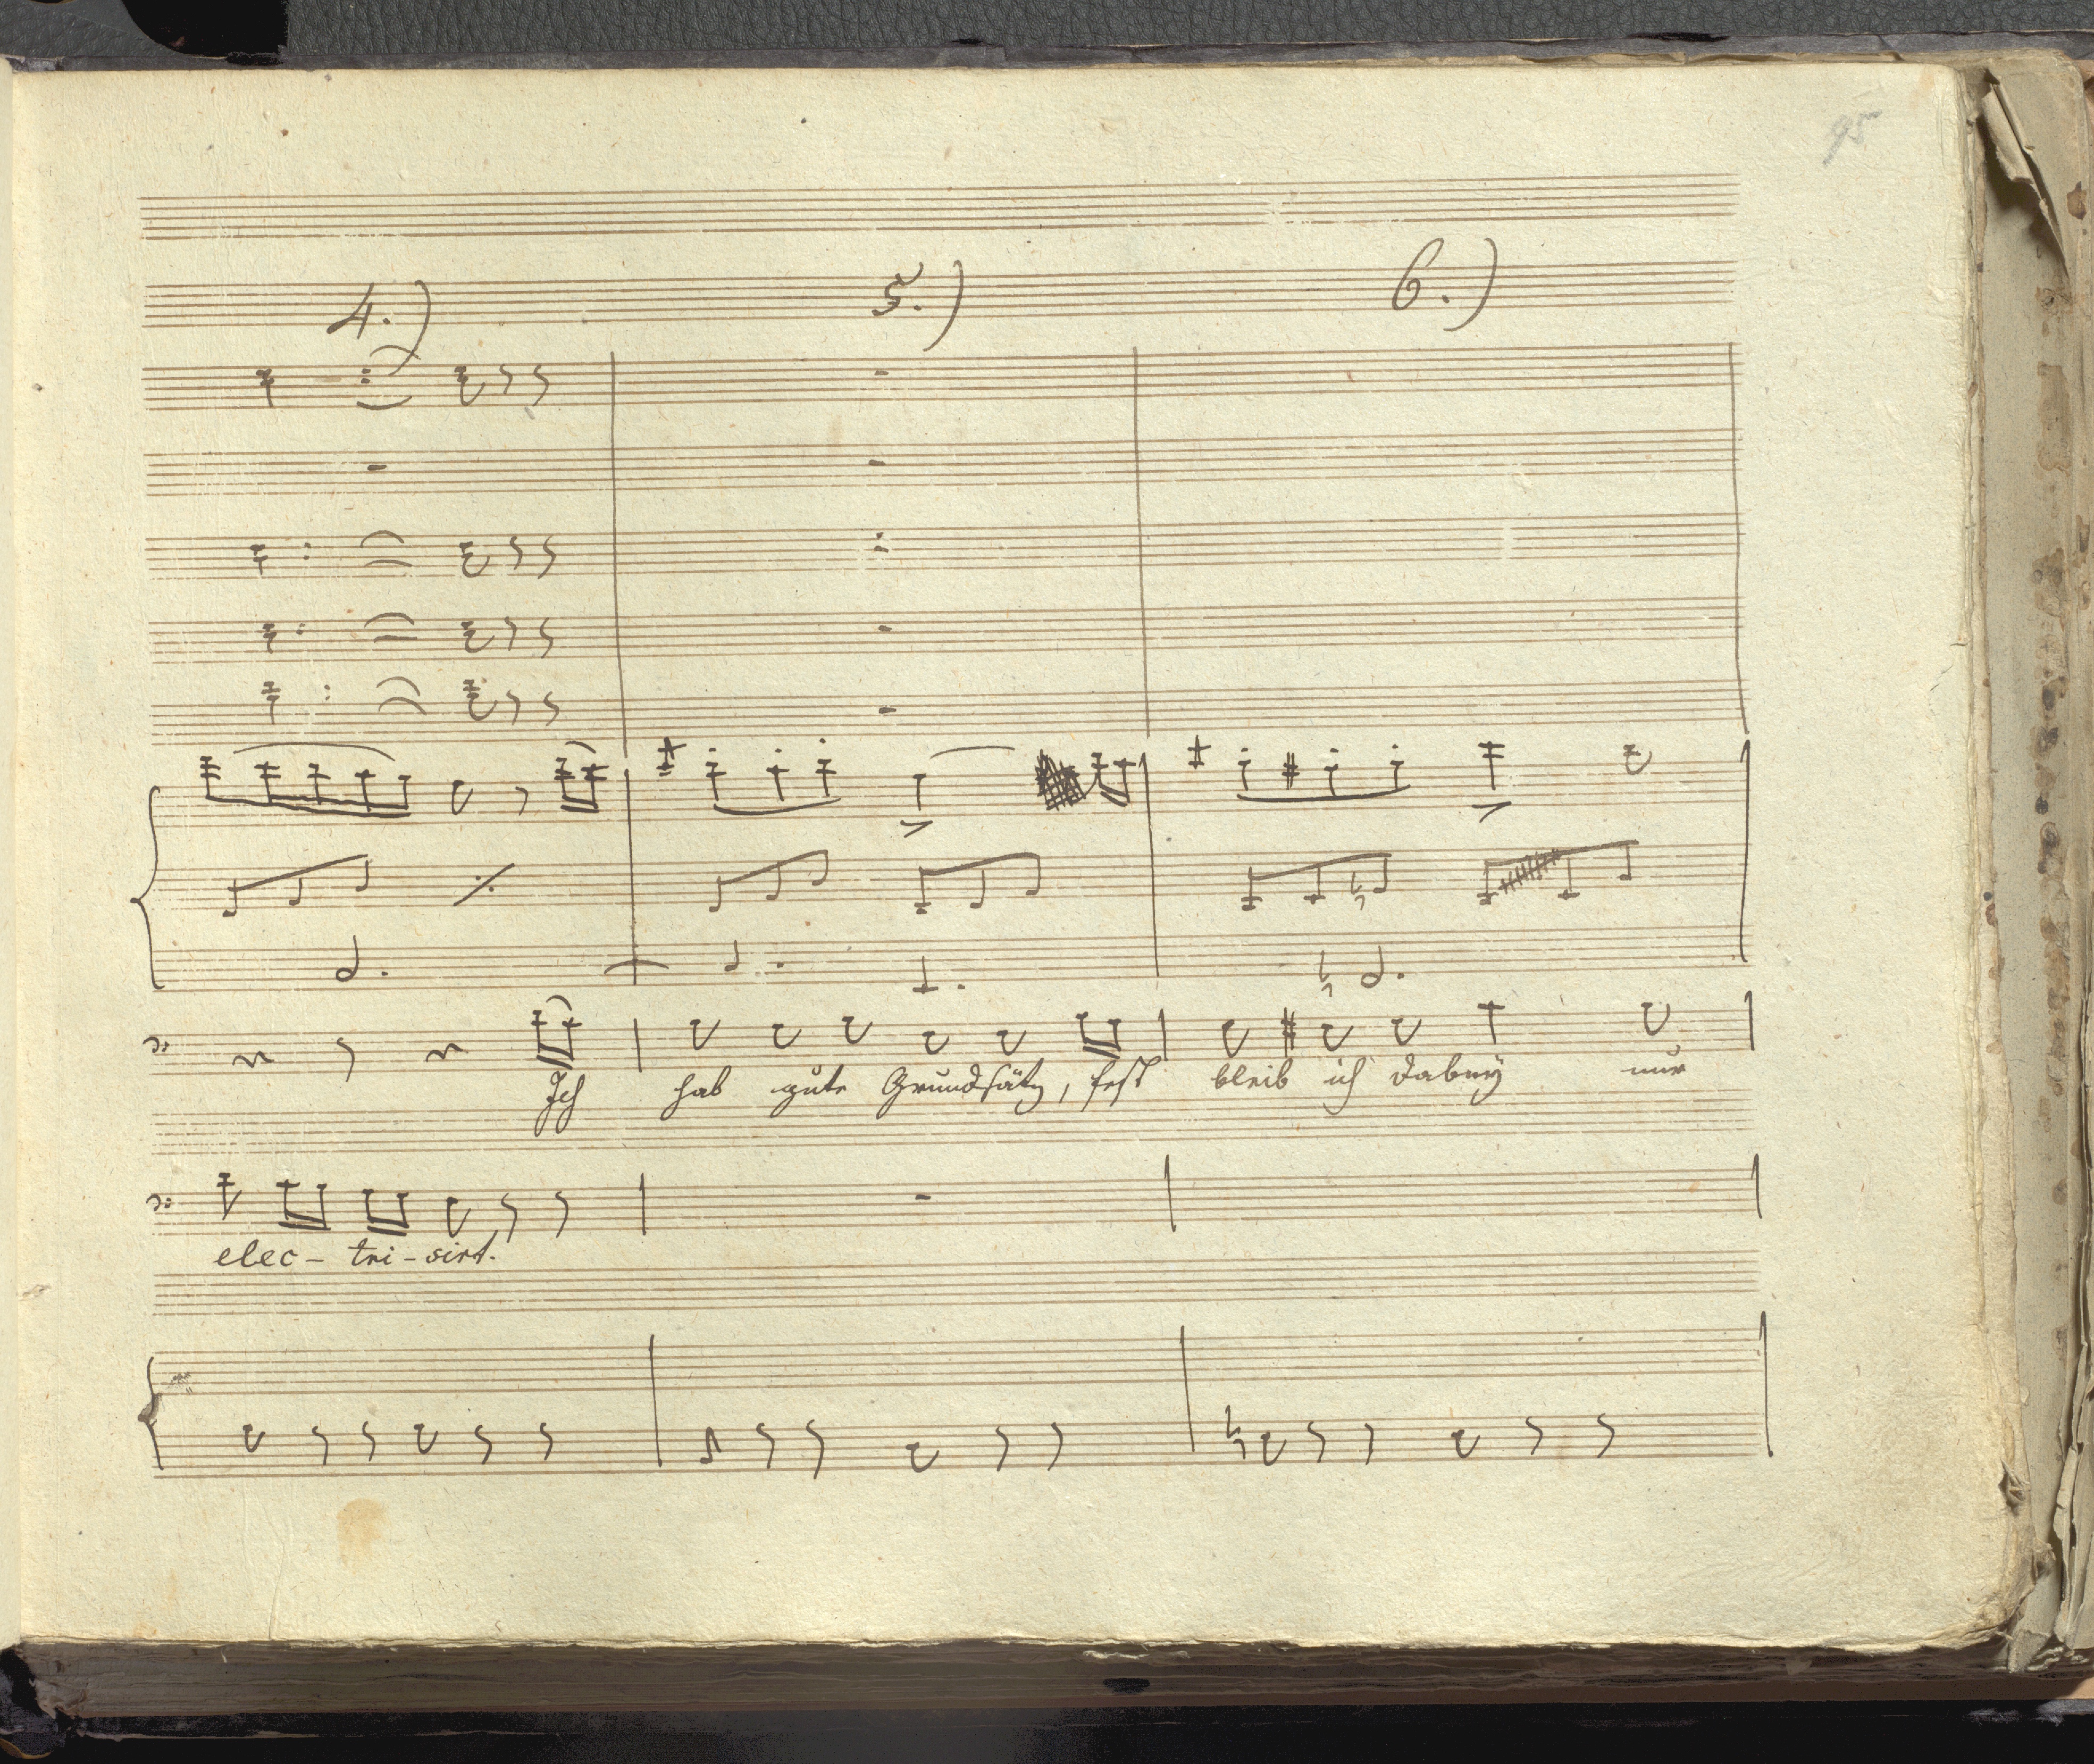 95
4.) 5.) 6.)
Ich hab gute Grundsätz, fest bleib ich dabey nur
elec- tri- sirt.